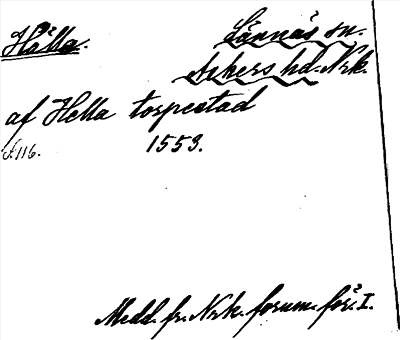 Hälla. Lännäs sn.
Askers hd. Nrk.
af Hella torpestad
s. 116. 1553.
Medd. fr. Nrk. fornm. för. I.